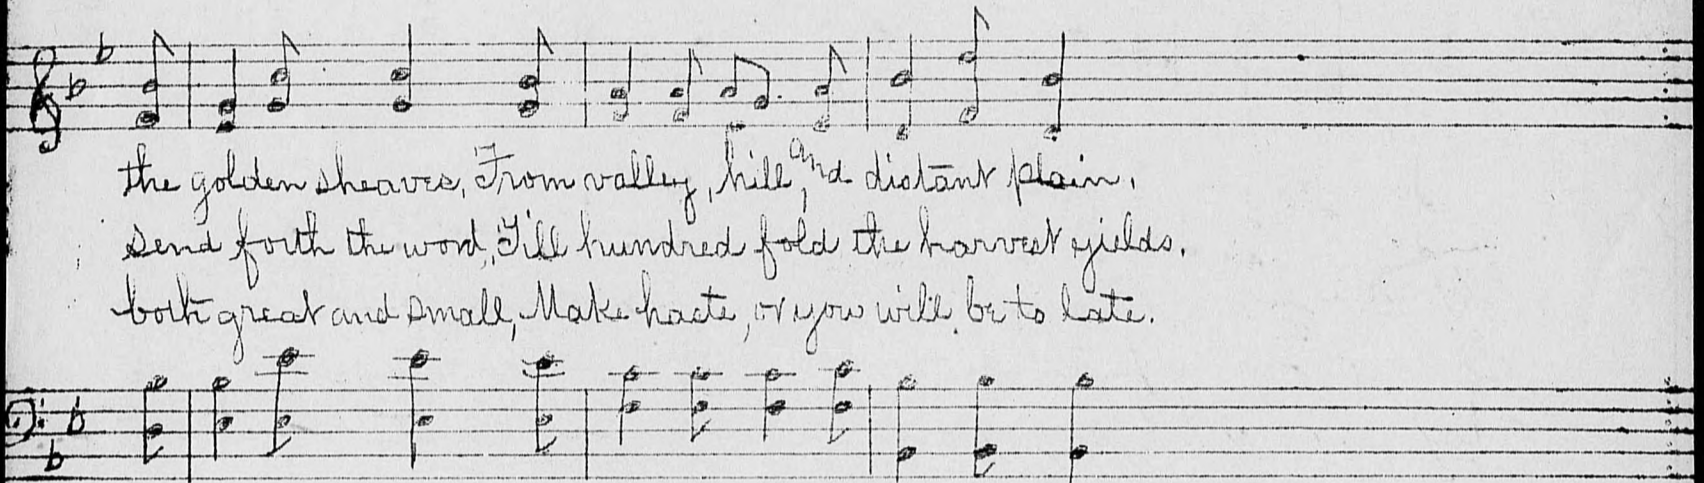 the golden sheaves, From valley, hill, and distant plain.
send forth the word, Till hundred fold the harvest yields.
both great and small, Make hacte, or you will be to late.